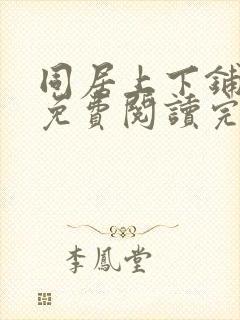 同居上下鋪
免費閱讀完
李鳳堂